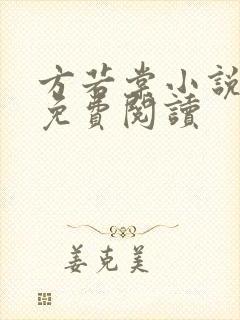 方若棠小說
免費閱讀
姜克美